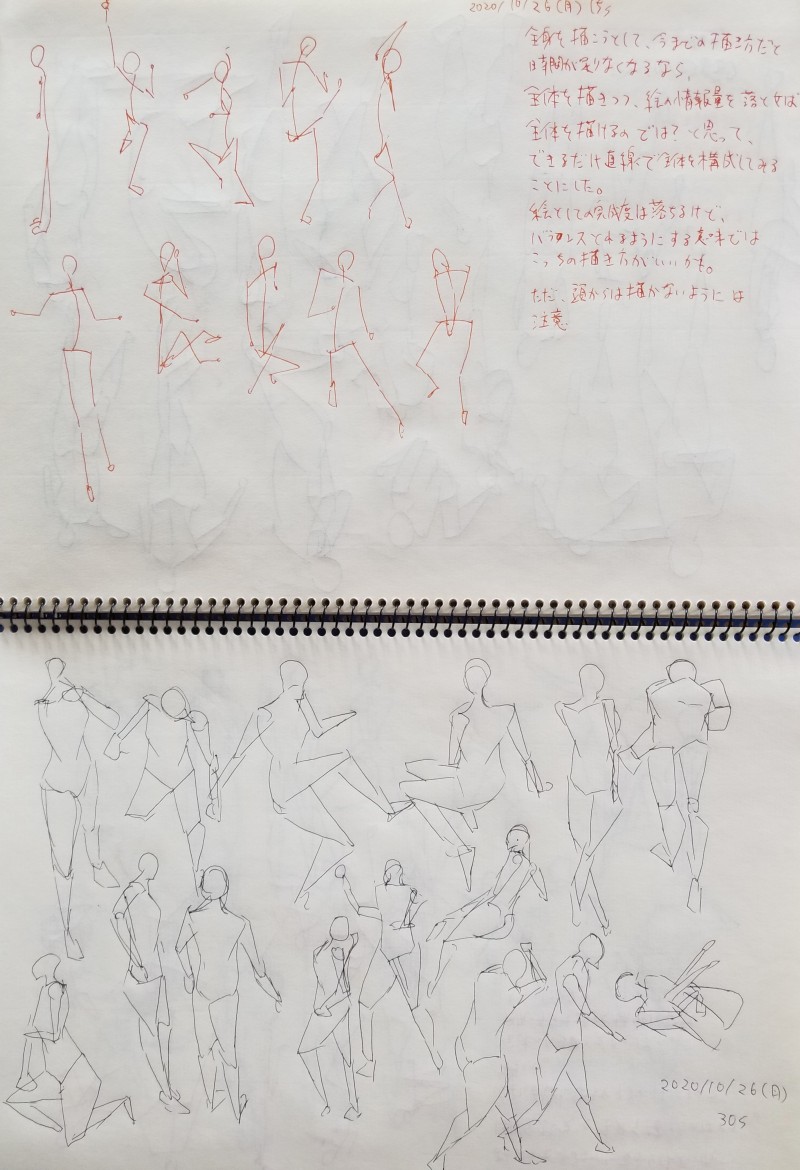 2020/10/26(月) 15s
全身を描こうとして、今までの描き方だと
時間が足りなくなるなら、
全体を描きつつ、絵の情報量を落とせば
全体を描けるのでは?と思って、
できるだけ直線で全体を構成してみる
ことにした。
絵としての完成度は落ちるけど、
バランスとれるようにする意味では
こっちの描き方がいいかも。
ただ、頭からは描かないようには
注意
2020/10/26(月)
30s